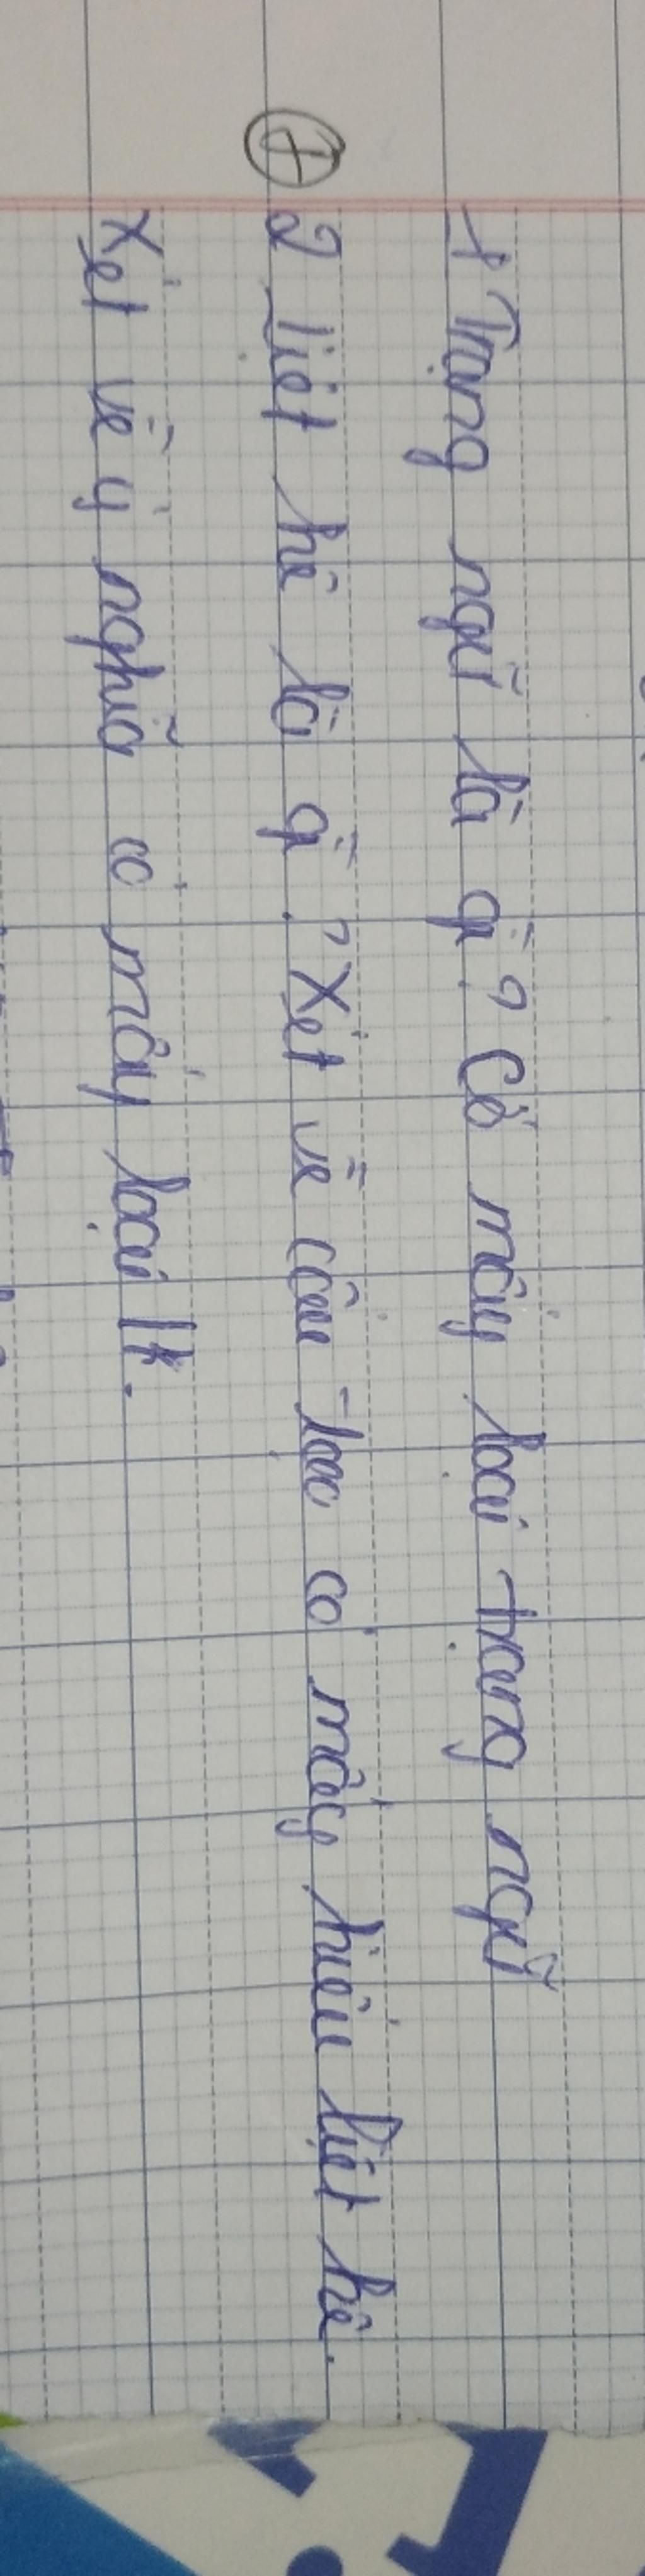 1 Trạng ngữ là gì? Có mấy loại trạng ngữ
2 Liệt kê là gì? Xét về cấu tạo có mấy kiểu liệt kê.
Xét về ý nghĩa có mấy loại lk.